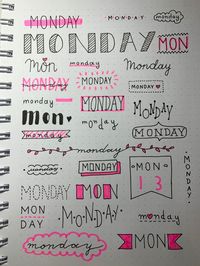 MONDAY MONDAY monday
MONDAY MON
Mon monday Monday
MONDAY MONDAY monday
monday MONDAY MONDAY
Mon monday MONDAY
monday
monday
monday MONDAY MON
MONDAY
MONDAY MON 13
MON DAY MONDAY monday
monday MON